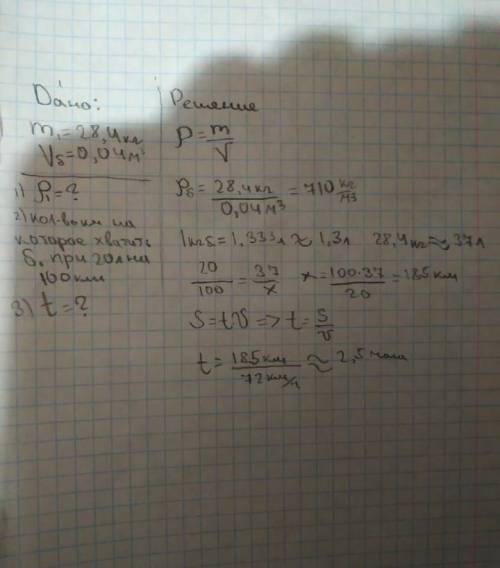 Дано:
m₁=28,4кг
Vб=0,04м³
1) ρ₁=?
2) кол-во км на
которое хватит
б. при 20л на
100км
3) t=?
Решение
ρ=m/V
ρб=28,4кг/0,04м³=710 кг/м³
1кгб=1,333л≈1,3л 28,4кг≈37л
20/100=37/x x=100·37/20=185км
S=tV=>t=S/V
t=185км/72км/ч≈2,5часа